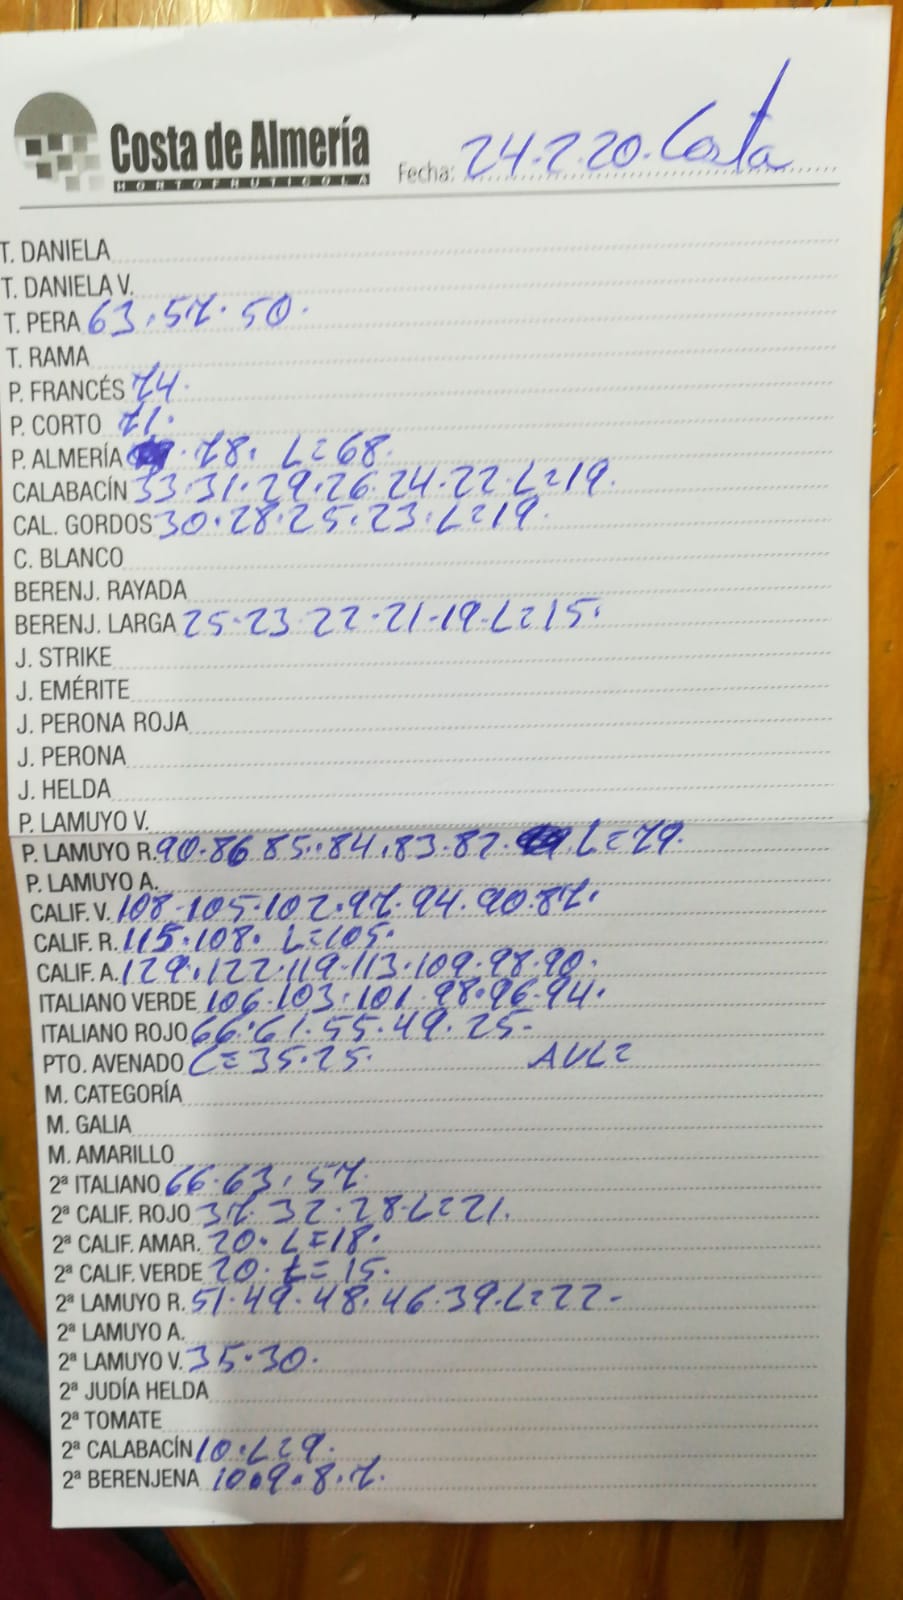 Costa de Almería
HORTOFRUTICOLA
Fecha: 24.2.20. Costa
T. DANIELA
T. DANIELA V.
T. PERA 63.57.50.
T. RAMA
P. FRANCÉS 74.
P. CORTO 71.
P. ALMERÍA . 78. L=68.
CALABACÍN 33.31.29.26.24.22.L=19.
CAL. GORDOS 30.28.25.23.L=19.
C. BLANCO
BERENJ. RAYADA
BERENJ. LARGA 25.23.22.21.19.L=15.
J. STRIKE
J. EMÉRITE
J. PERONA ROJA
J. PERONA
J. HELDA
P. LAMUYO V.
P. LAMUYO R. 90.86.85.84.83.82. L=79.
P. LAMUYO A.
CALIF. V. 108.105.102.97.94.90.87.
CALIF. R. 115.108. L=105.
CALIF. A. 129.122.119.113.109.98.90.
ITALIANO VERDE 106.103.101.98.96.94.
ITALIANO ROJO 66.61.55.49.25.
PTO. AVENADO L=35.25. AVL=
M. CATEGORÍA
M. GALIA
M. AMARILLO
2ª ITALIANO 66.63.57.
2ª CALIF. ROJO 37.32.28.L=21.
2ª CALIF. AMAR. 20. L=18.
2ª CALIF. VERDE 20. L=15.
2ª LAMUYO R. 51.49.48.46.39.L=22.
2ª LAMUYO A.
2ª LAMUYO V. 35.30.
2ª JUDÍA HELDA
2ª TOMATE
2ª CALABACÍN 10.L=9.
2ª BERENJENA 10.9.8.7.